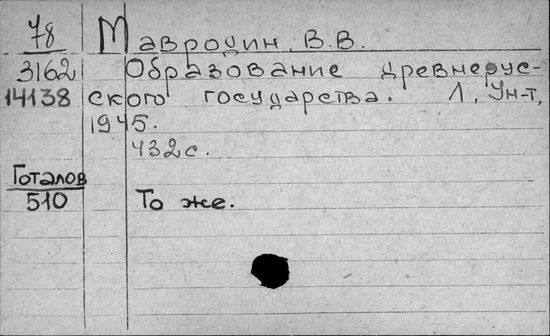 78 Мавродин, В.В.
3162 Образование древнерус-
14138 ского государства. Л, Ун-т,
1945.
432с.
Готалов
510 То же.